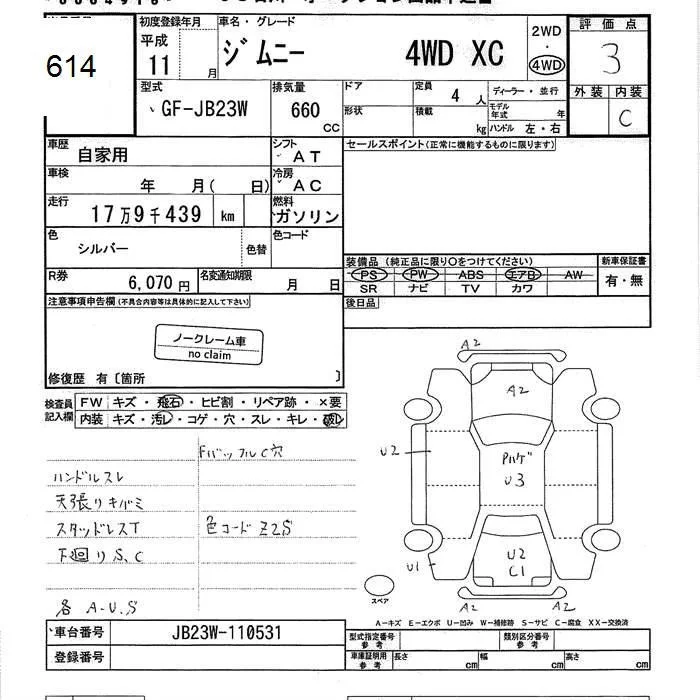 614
初度登録年月
平成
11 月
車名・グレード
ジムニー 4WD XC
2WD
・
4WD
評価点
3
外装 内装
C
型式
GF-JB23W
排気量
660
CC
ドア
形状
定員
4 人
積載
kg
ディーラー・並行
モデル年式 年
ハンドル 左・右
車歴
自家用
シフト
AT
セールスポイント(正常に機能するものに限ります)
車検
年 月( 日)
冷房
AC
走行
17万9千439 km
燃料
ガソリン
色
シルバー
色替
色コード
装備品 (純正品に限り○をつけてください)
新車保証書
PS PW ABS エアB AW
有・無
SR ナビ TV カワ
R券
6,070円
名変通知期限
月 日
後日品
注意事項申告欄(不具合内容等は具体的に記入して下さい)
ノークレーム車
no claim
修復歴 有〔箇所 〕
検査員
記入欄
FW キズ・飛石・ヒビ割・リペア跡・×要
内装 キズ・汚レ・コゲ・穴・スレ・キレ・破レ
FバッフルC穴
ハンドルスレ
天張りキバミ
スタッドレスT
色コードZ2S
下廻りS、C
各 A-U.S
A2
A2
U2
Pハゲ
U3
U2
C1
U1
A2
A2
スペア
A-キズ E-エクボ U-凹み W-補修跡 S-サビ C-腐食 XX-交換済
車台番号
JB23W-110531
登録番号
型式指定番号
参考
類別区分番号
参考
車庫証明用
参考
長さ cm
幅 cm
高さ cm